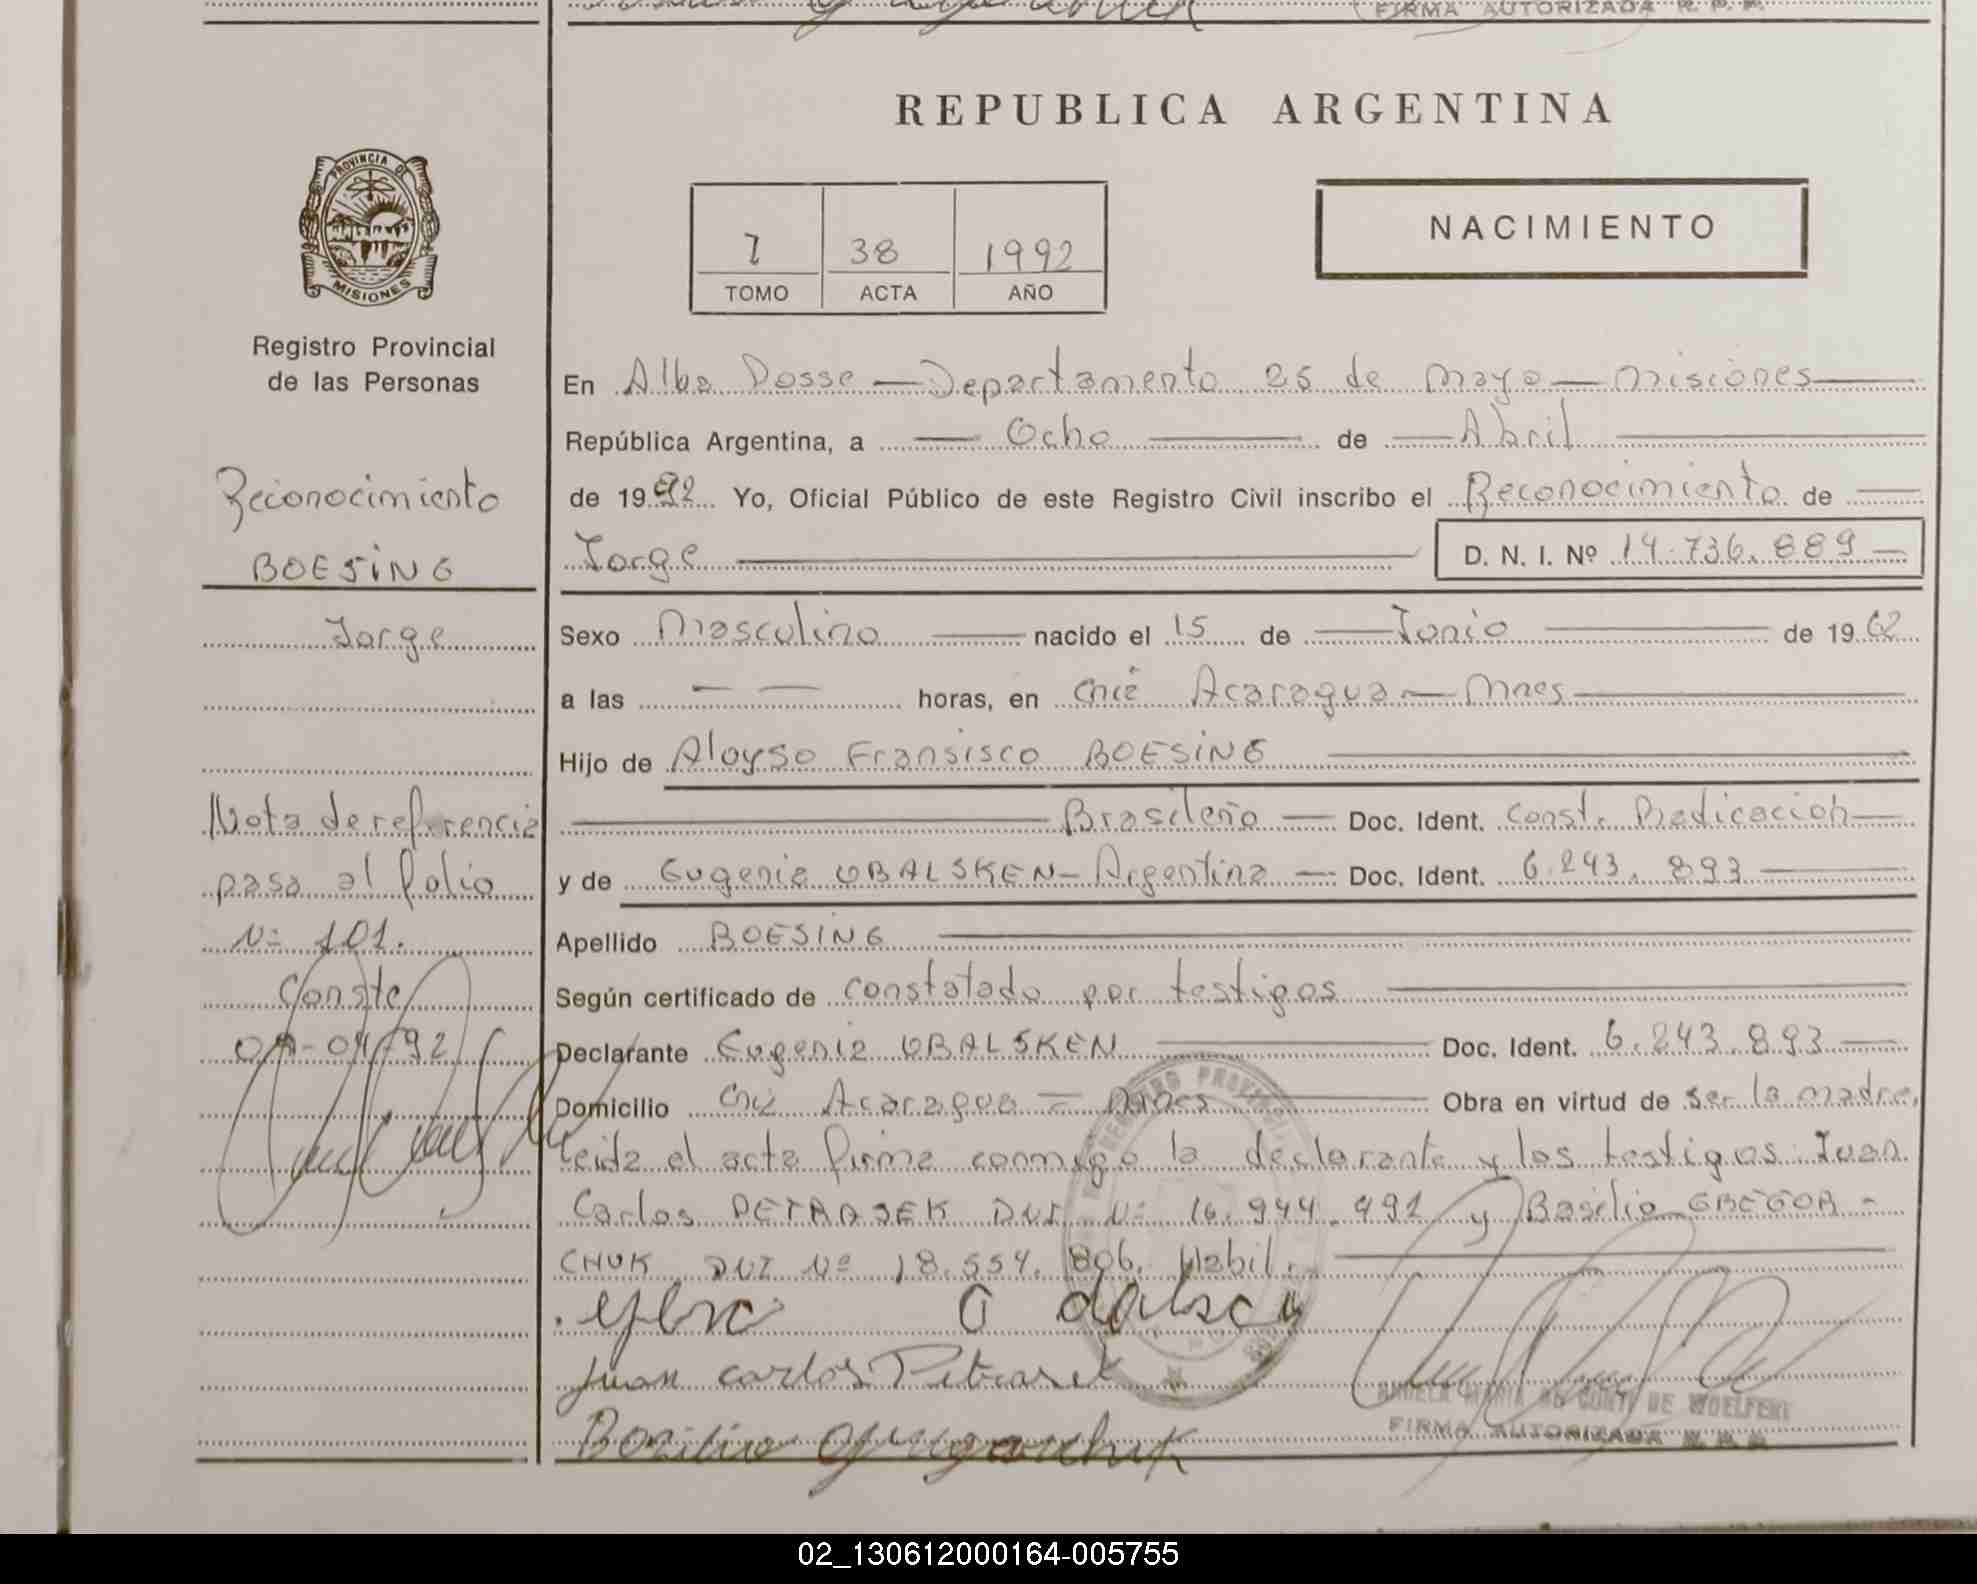 FIRMA AUTORIZADA R. P. P.
REPUBLICA ARGENTINA
PROVINCIA DE
MISIONES
Registro Provincial
de las Personas
Reconocimiento
BOESING
Jorge
Nota de referencia
pasa al folio
Nº 101.
Conste
04/92
NACIMIENTO
1 38 1992
TOMO ACTA AÑO
En Alba Posse — Departamento 25 de Mayo — Misiones
República Argentina, a — Ocho — de — Abril
de 1992 Yo, Oficial Público de este Registro Civil inscribo el Reconocimiento de —
Jorge — D. N. I. Nº 14.736.889 —
Sexo Masculino — nacido el 15 de — Junio — de 1962
a las — — horas, en Cnia Acaragua — Mnes —
Hijo de Aloyso Fransisco BOESING —
— Brasileño — Doc. Ident. Const. Radicacion —
y de Eugenia OBALSKEN — Argentina — Doc. Ident. 6.243.893 —
Apellido BOESING —
Según certificado de constatado por testigos —
Declarante Eugenia OBALSKEN — Doc. Ident. 6.243.893 —
Domicilio Cnia Acaragua = Mnes — Obra en virtud de ser la madre,
leida el acta firma conmigo la declarante y los testigos: Juan
Carlos PETRASEK DNI Nº 16.944.491 y Basilio GREGOR -
CHUK DNI Nº 18.554.806. Habil. —
Juan carlos Petrasek
FIRMA AUTORIZADA R. P. P.
02_130612000164-005755